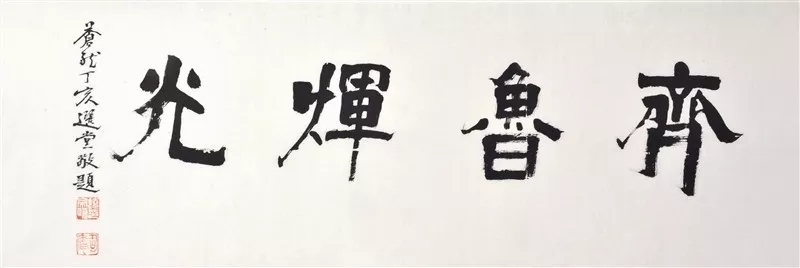 齊魯輝光
蒼龍丁亥選堂敬題